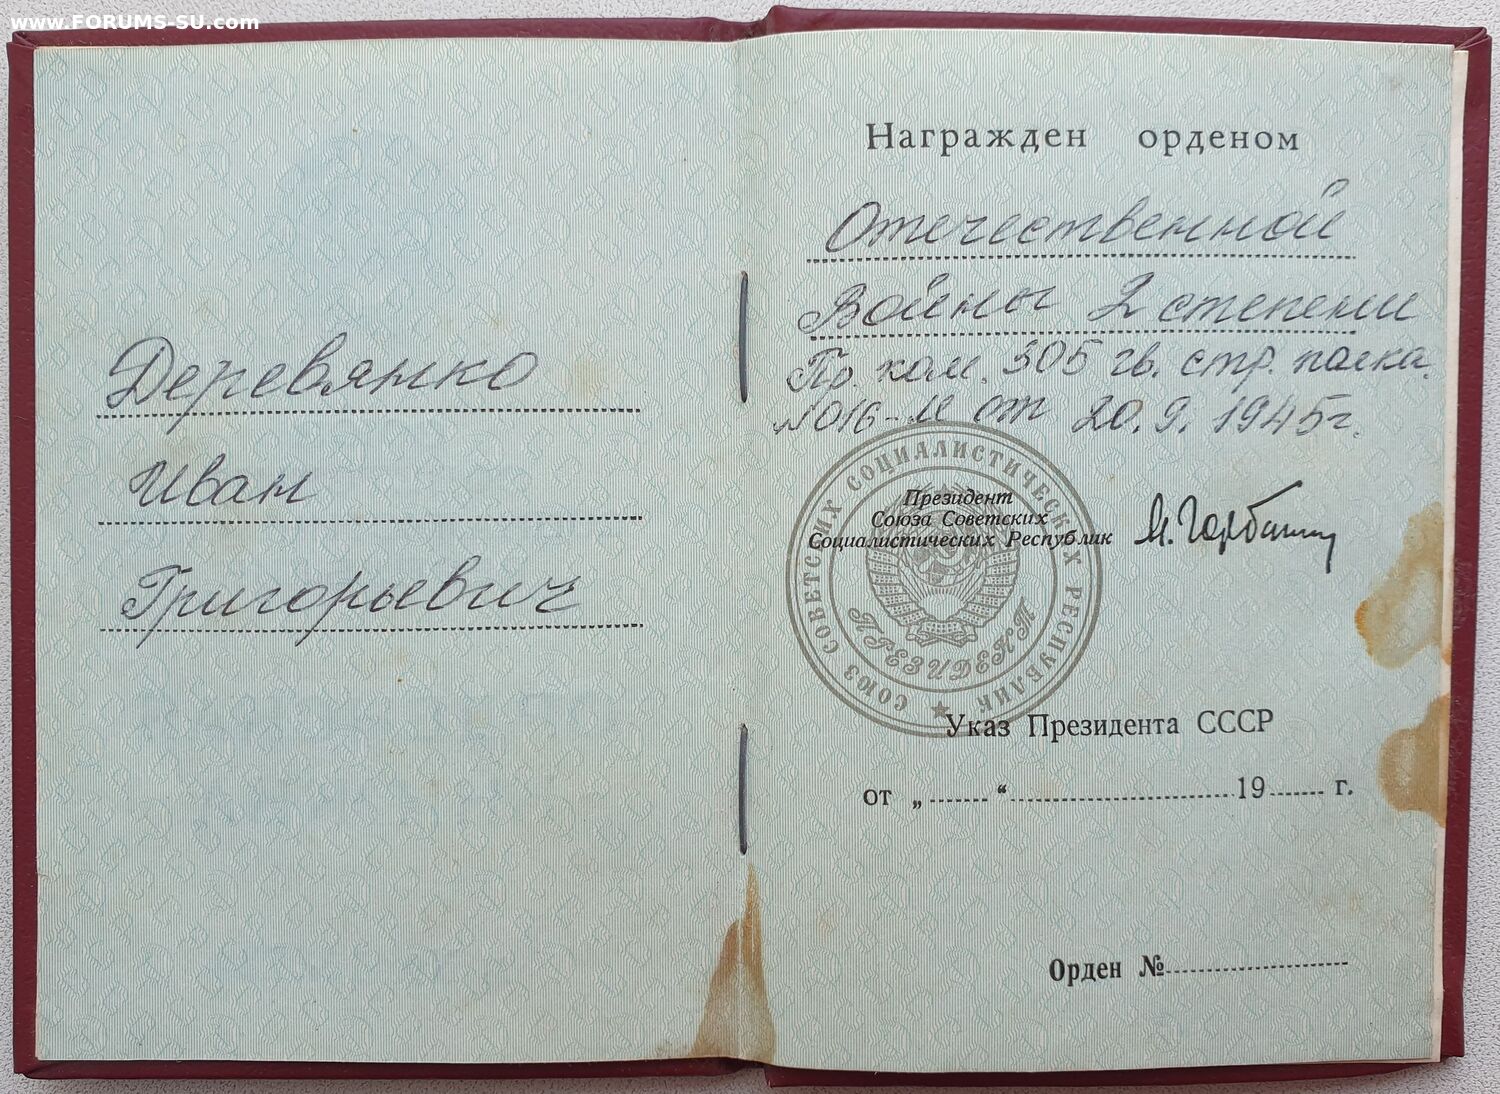 www.FORUMS-SU.com
Деревянко
Иван
Григорьевич
Награжден орденом
Отечественной
Войны 2 степени
Пр. ком. 305 гв. стр. полка
№ 016-И от 20.9.1945г.
Президент
Союза Советских
Социалистических Республик
М. Горбачев
СОЮЗ СОВЕТСКИХ СОЦИАЛИСТИЧЕСКИХ РЕСПУБЛИК
ПРЕЗИДЕНТ
Указ Президента СССР
от „ “ 19 г.
Орден №